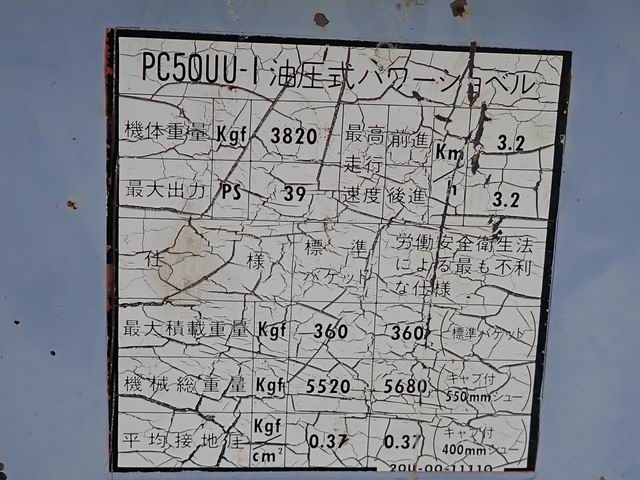 PC50UU-1 油圧式パワーショベル
機体重量 Kgf 3820 最高走行速度 前進 Km/h 3.2
最大出力 PS 39 後進 3.2
仕様 標準バケット 労働安全衛生法による最も不利な仕様
最大積載重量 Kgf 360 360 標準バケット
機械総重量 Kgf 5520 5680 キャブ付 550mmシュー
平均接地圧 Kgf/cm² 0.37 0.37 キャブ付 400mmシュー
20U-00-11110